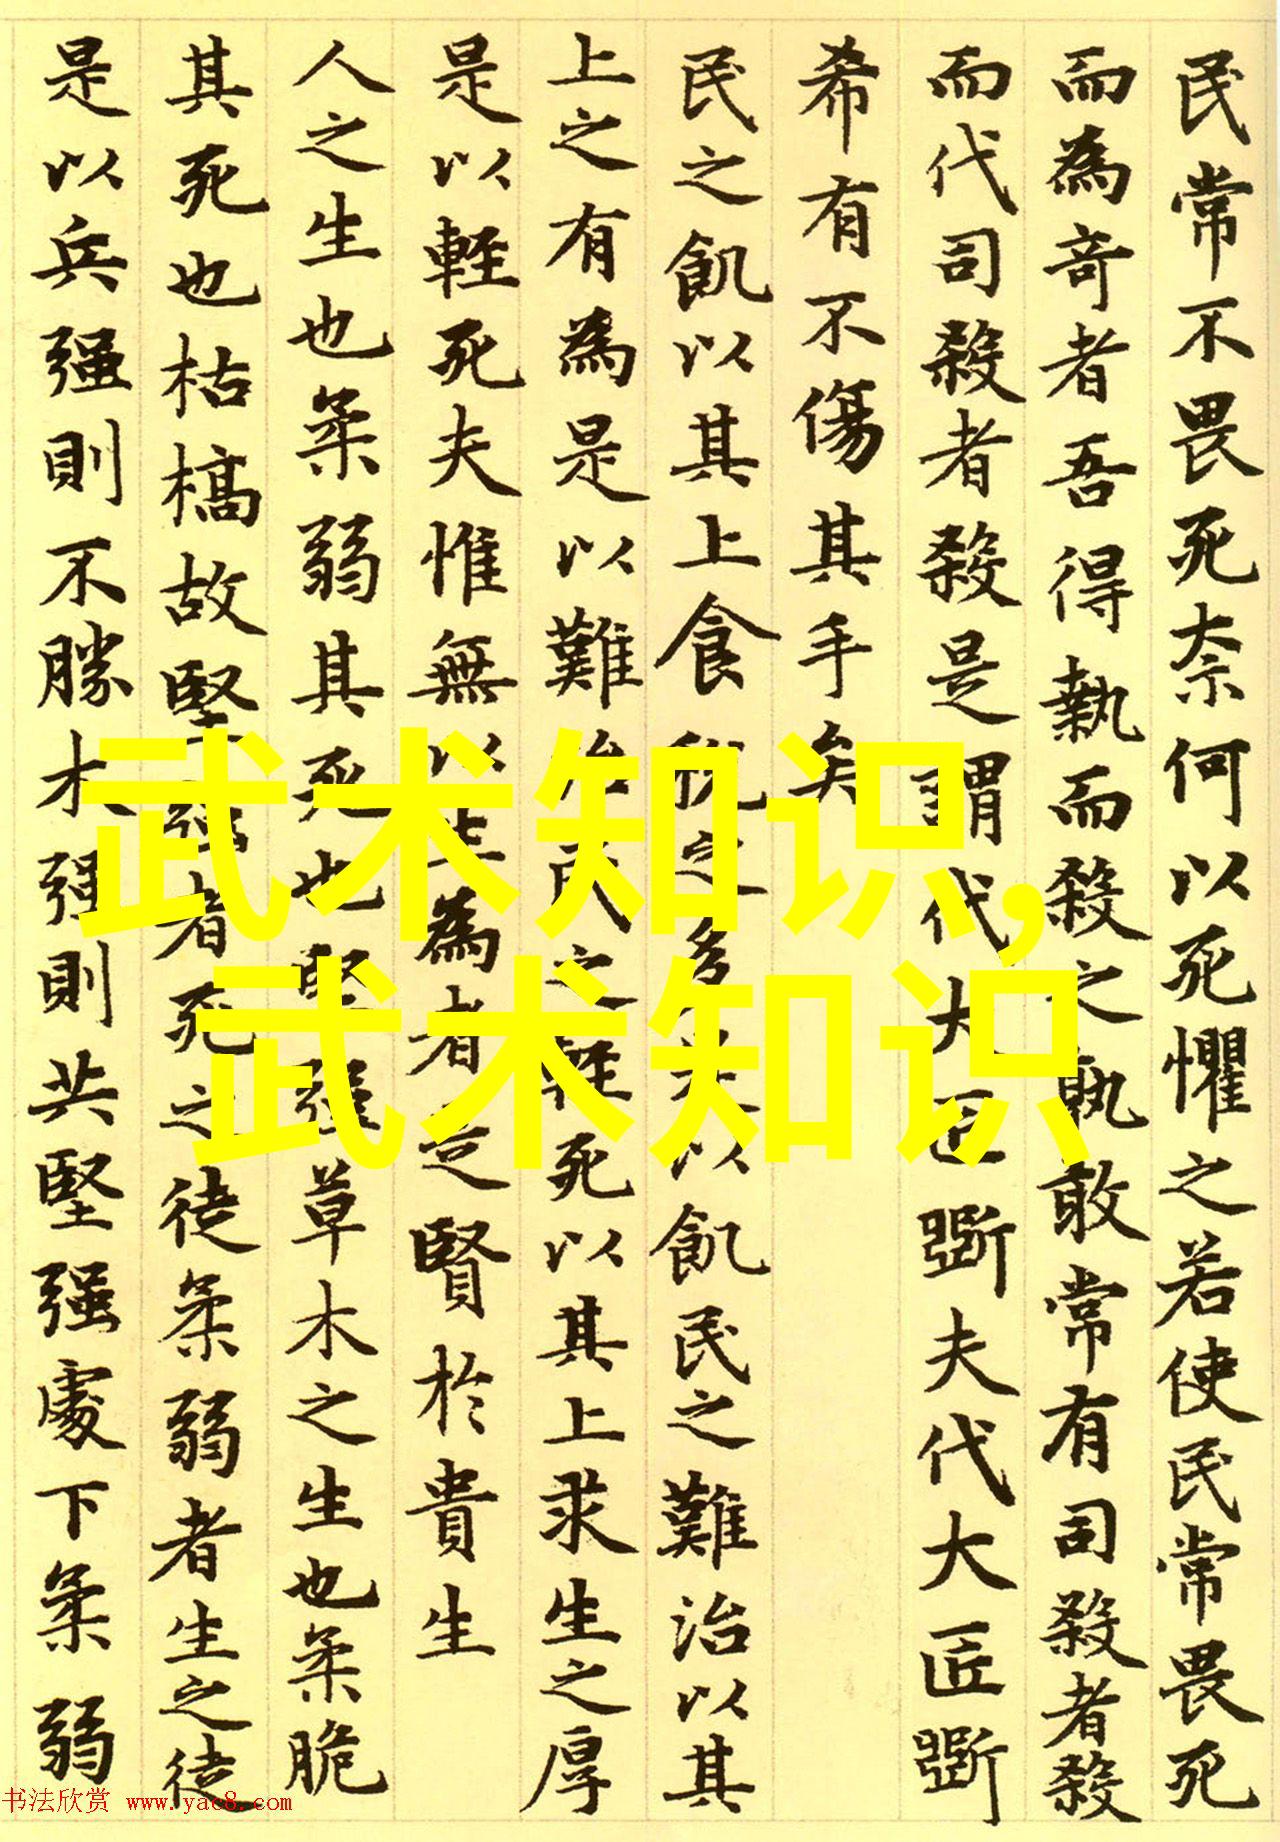 民常不畏死柰何以死懼之若使民常畏死
而為竒者吾得執而殺之孰敢常有司殺者殺
而代司殺者殺是謂代大匠斲夫代大匠斲
希有不傷其手矣
民之飢以其上食稅之多是以飢民之難治以其
上之有為是以難治民之輕死以其上求生之厚
是以輕死夫惟無以生為者是賢於貴生
人之生也柔弱其死也堅强草木之生也柔脆
其死也枯槁故堅强者死之徒柔弱者生之徒
是以兵强則不勝木强則共堅强處下柔弱
武术知识,
武术知识
书法欣赏 www.yac8.com